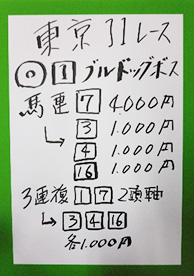 東京11レース
◎1ブルドッグボス
馬連7 4.000円
→3 1.000円
4 1.000円
16 1.000円
3連複1 7 2頭軸
→3 4 16
各1.000円